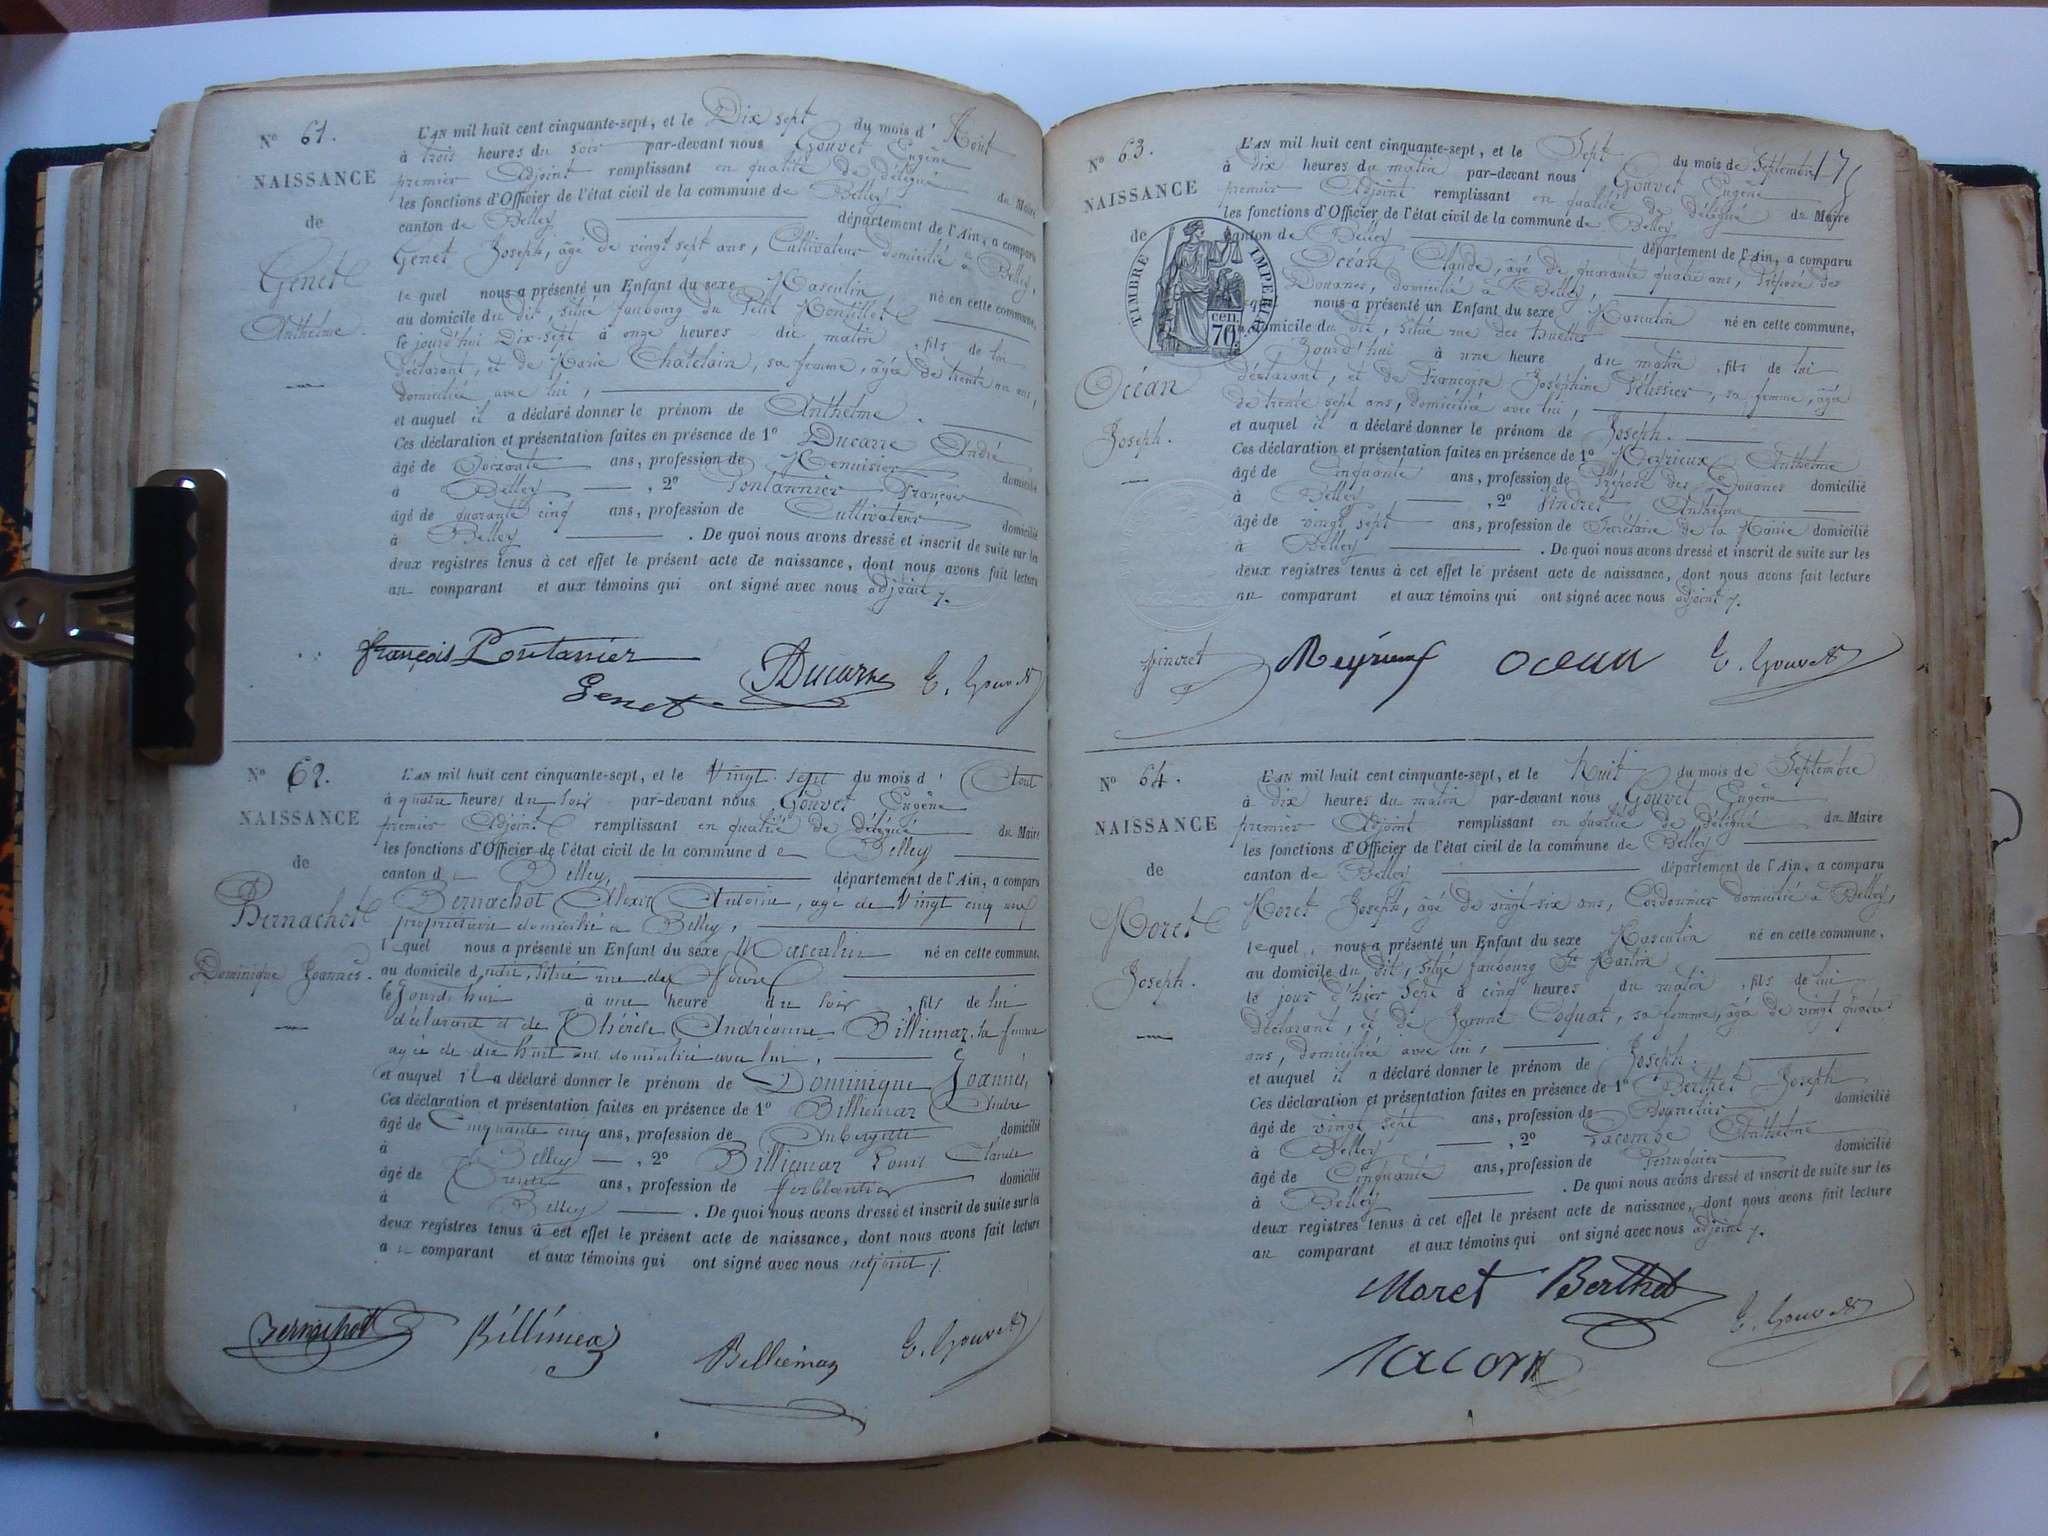 N° 61.
NAISSANCE
de
Genet
Anthelme.
L'AN mil huit cent cinquante-sept, et le Dix sept du mois d' Août
à trois heures du soir par-devant nous Gouvet Eugène
premier Adjoint remplissant en qualité de délégué du Maire
les fonctions d'Officier de l'état civil de la commune de Belley
canton de Belley département de l'Ain, a comparu
Genet Joseph, âgé de vingt sept ans, Cultivateur domicilié à Belley,
lequel nous a présenté un Enfant du sexe Masculin né en cette commune,
au domicile du dit, situé faubourg du Petit
le jourd'hui Dix-sept à onze heures du matin, fils de lui
déclarant, et de Marie Chatelain, sa femme, âgée de trente un ans,
domiciliée avec lui,
et auquel il a déclaré donner le prénom de Anthelme.
Ces déclaration et présentation faites en présence de 1° Ducarre André
âgé de Soixante ans, profession de Menuisier domicilié
à Belley, 2° Pontannier François
âgé de quarante cinq ans, profession de Cultivateur domicilié
à Belley. De quoi nous avons dressé et inscrit de suite sur les
deux registres tenus à cet effet le présent acte de naissance, dont nous avons fait lecture
au comparant et aux témoins qui ont signé avec nous adjoint
françois Pontannier
Genet
Ducarre
E. Gouvet
N° 62.
NAISSANCE
de
Bernachot
Dominique Joannès.
L'AN mil huit cent cinquante-sept, et le Vingt-sept du mois d' Aout
à quatre heures du soir par-devant nous Gouvet Eugène
premier Adjoint remplissant en qualité de délégué du Maire
les fonctions d'Officier de l'état civil de la commune de Belley
canton de Belley, département de l'Ain, a comparu
Bernachot Alexis Antoine, âgé de Vingt cinq ans
propriétaire domicilié à Belley,
lequel nous a présenté un Enfant du sexe Masculin né en cette commune,
au domicile du situé rue des
le Jourd'hui à une heure du soir, fils de lui
déclarant et de Thérèse Andréanne Billiemaz, sa femme
agée de dix huit ans domiciliée avec lui,
et auquel il a déclaré donner le prénom de Dominique Joannès,
Ces déclaration et présentation faites en présence de 1° Billiemaz André
âgé de Cinquante cinq ans, profession de Aubergiste domicilié
à Belley, 2° Billiemaz Louis Claude
âgé de Trente ans, profession de ferblantier domicilié
à Belley. De quoi nous avons dressé et inscrit de suite sur les
deux registres tenus à cet effet le présent acte de naissance, dont nous avons fait lecture
au comparant et aux témoins qui ont signé avec nous adjoint
Bernachot
Billiemaz
Billiemaz
E. Gouvet
N° 63.
NAISSANCE
de
Océan
Joseph.
TIMBRE IMPERIAL
70 cen.
L'AN mil huit cent cinquante-sept, et le Sept du mois de Septembre
à dix heures du matin par-devant nous Gouvet Eugène
premier Adjoint remplissant en qualité de délégué du Maire
les fonctions d'Officier de l'état civil de la commune de Belley
canton de Belley département de l'Ain, a comparu
Océan Claude, âgé de quarante quatre ans, Préposé des
Douanes, domicilié à Belley,
lequel nous a présenté un Enfant du sexe Masculin né en cette commune,
au domicile du dit, situé rue des
Jourd'hui à une heure du matin, fils de lui
déclarant, et de Françoise Joséphine Pélissier, sa femme, âgée
de trente sept ans, domiciliée avec lui,
et auquel il a déclaré donner le prénom de Joseph.
Ces déclaration et présentation faites en présence de 1° Meyrieux Anthelme
âgé de Cinquante ans, profession de Préposé des Douanes domicilié
à Belley, 2° Pindret Anthelme
âgé de vingt sept ans, profession de Secrétaire de la Mairie domicilié
à Belley. De quoi nous avons dressé et inscrit de suite sur les
deux registres tenus à cet effet le présent acte de naissance, dont nous avons fait lecture
au comparant et aux témoins qui ont signé avec nous adjoint
Meyrieux
Ocean
E. Gouvet
N° 64.
NAISSANCE
de
Moret
Joseph.
L'AN mil huit cent cinquante-sept, et le huit du mois de Septembre
à dix heures du matin par-devant nous Gouvet Eugène
premier Adjoint remplissant en qualité de délégué du Maire
les fonctions d'Officier de l'état civil de la commune de Belley
canton de Belley département de l'Ain, a comparu
Moret Joseph, âgé de vingt-six ans, Cordonnier domicilié à Belley,
lequel nous a présenté un Enfant du sexe Masculin né en cette commune,
au domicile du dit, situé faubourg St Martin
le jour d'hier Sept à cinq heures du matin, fils de lui
déclarant, et de Jeanne Coquat, sa femme, âgée de vingt quatre
ans, domiciliée avec lui,
et auquel il a déclaré donner le prénom de Joseph.
Ces déclaration et présentation faites en présence de 1° Berthet Joseph
âgé de vingt sept ans, profession de domicilié
à Belley, 2° Lacombe Anthelme
âgé de Cinquante ans, profession de Perruquier domicilié
à Belley. De quoi nous avons dressé et inscrit de suite sur les
deux registres tenus à cet effet le présent acte de naissance, dont nous avons fait lecture
au comparant et aux témoins qui ont signé avec nous adjoint
Moret Berthet
E. Gouvet